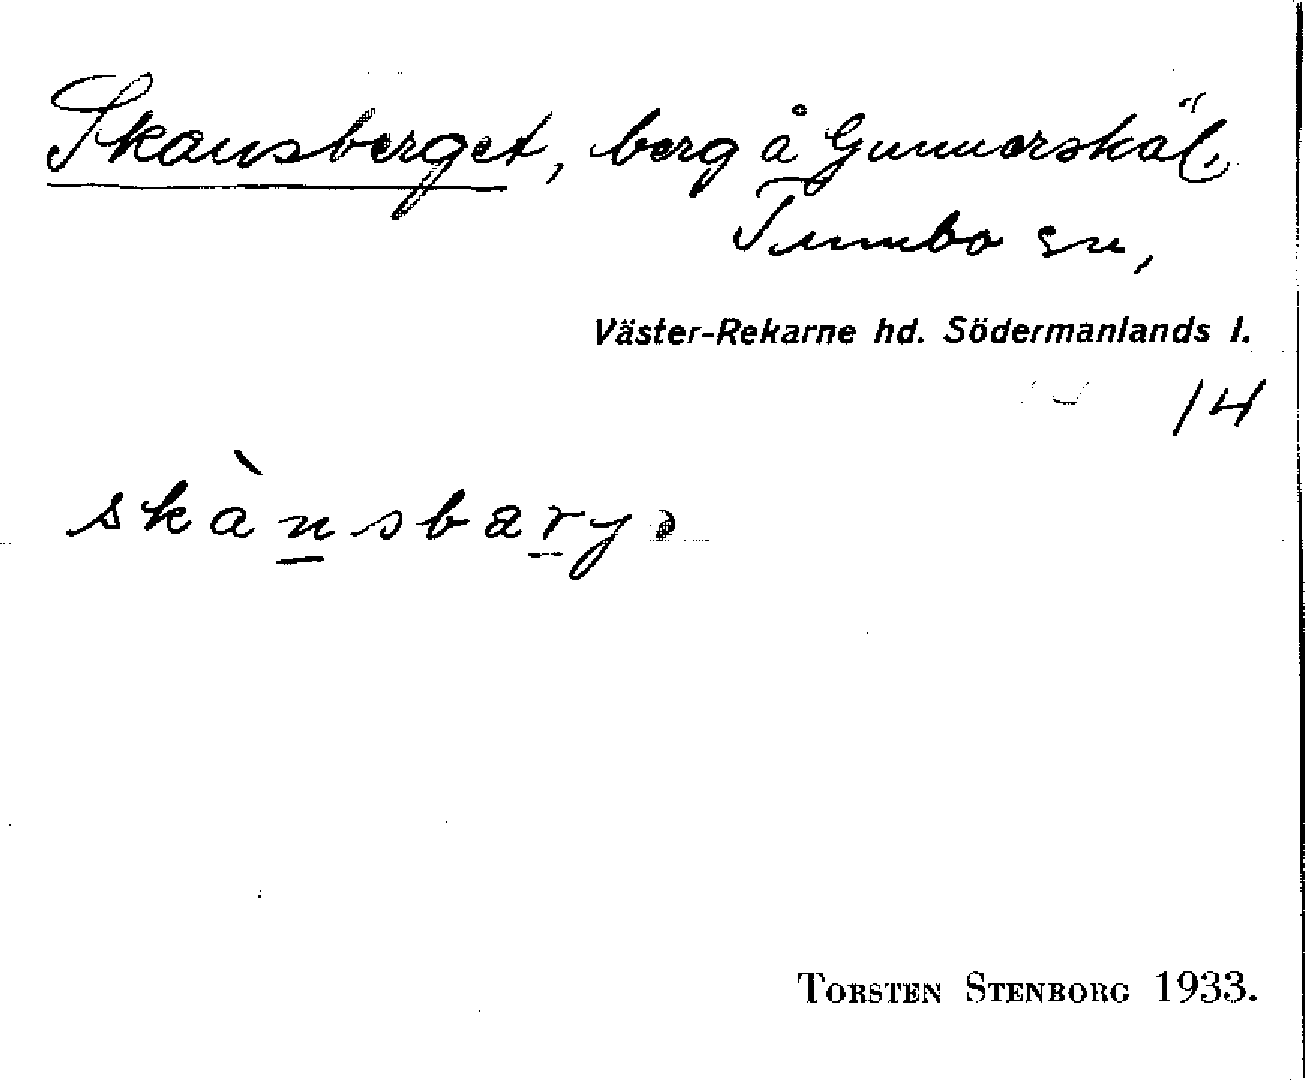 Skansberget, berg å Gunnerskäl,
Tumbo sn,
Väster-Rekarne hd. Södermanlands l.
14
skànsbaryə
TORSTEN STENBORG 1933.